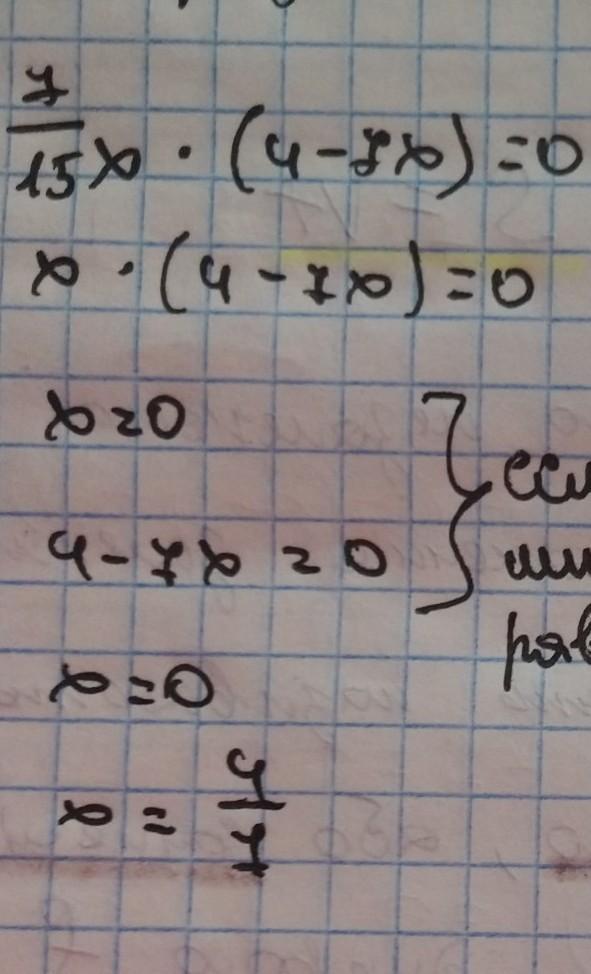 7/15 x · (4 - 7x) = 0
x · (4 - 7x) = 0
x = 0
4 - 7x = 0
x = 0
x = 4/7